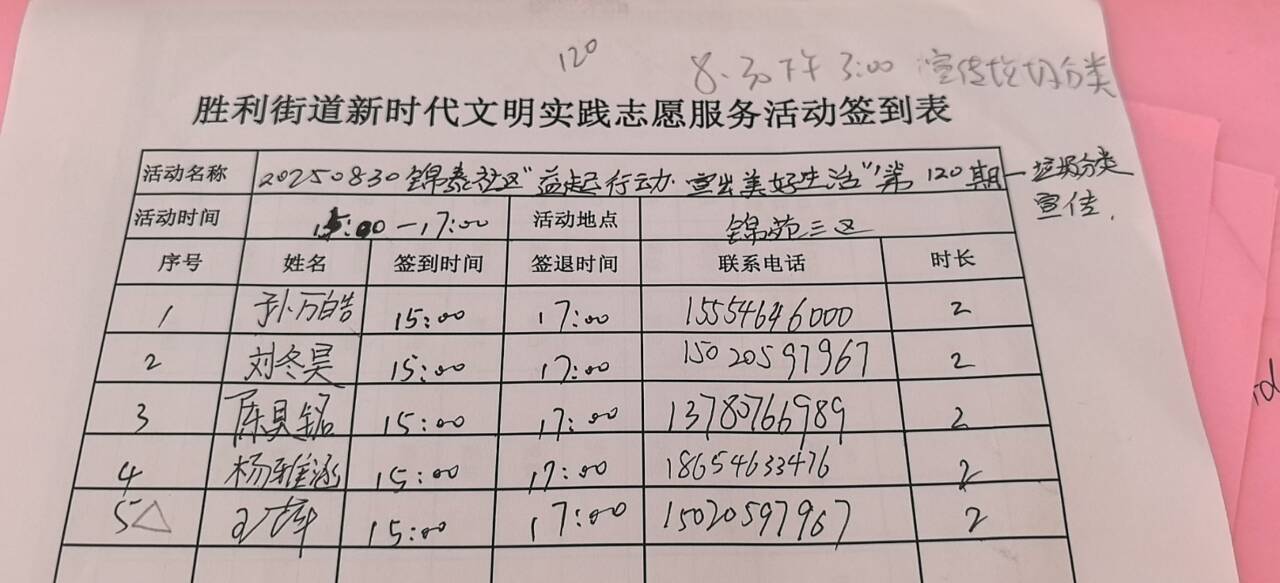 120
8.30下午3:00 宣传垃圾分类
胜利街道新时代文明实践志愿服务活动签到表
活动名称 20250830锦泰社区"益起行动·宣出美好生活"第120期—垃圾分类
宣传.
活动时间 15:00—17:00 活动地点 锦苑三区
序号 姓名 签到时间 签退时间 联系电话 时长
1 孙万皓 15:00 17:00 15554646000 2
2 刘冬昊 15:00 17:00 15020597967 2
3 陈昊铭 15:00 17:00 13780766989 2
4 杨雅涵 15:00 17:00 18654633476 2
5△ 15:00 17:00 15020597967 2